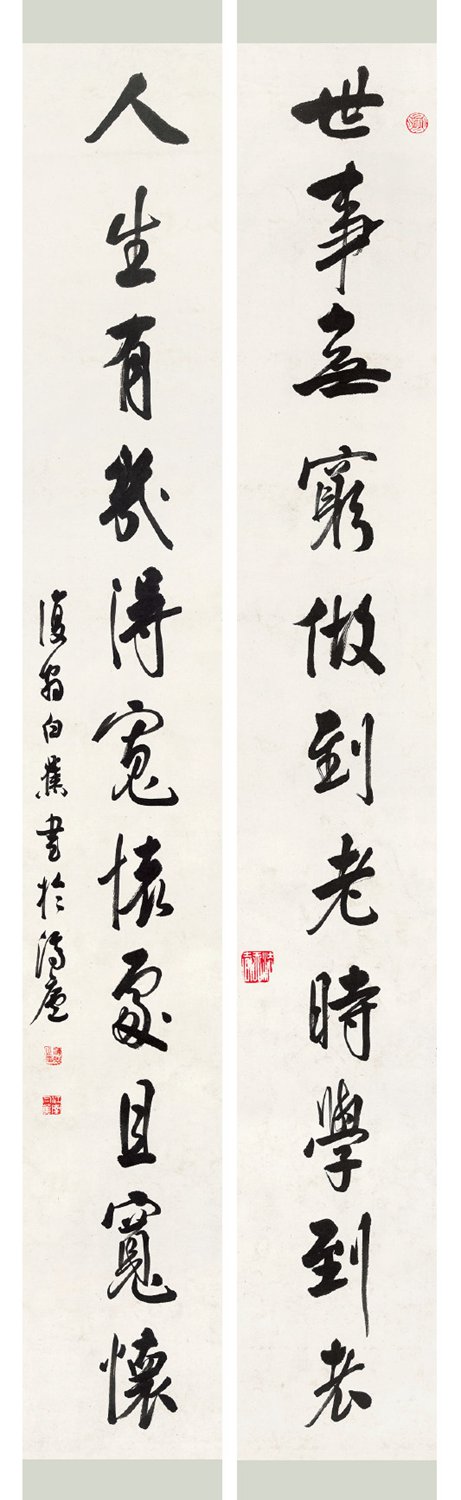 世事無窮做到老時學到老
人生有幾得寬懷處且寬懷
復翁白蕉書於海廬